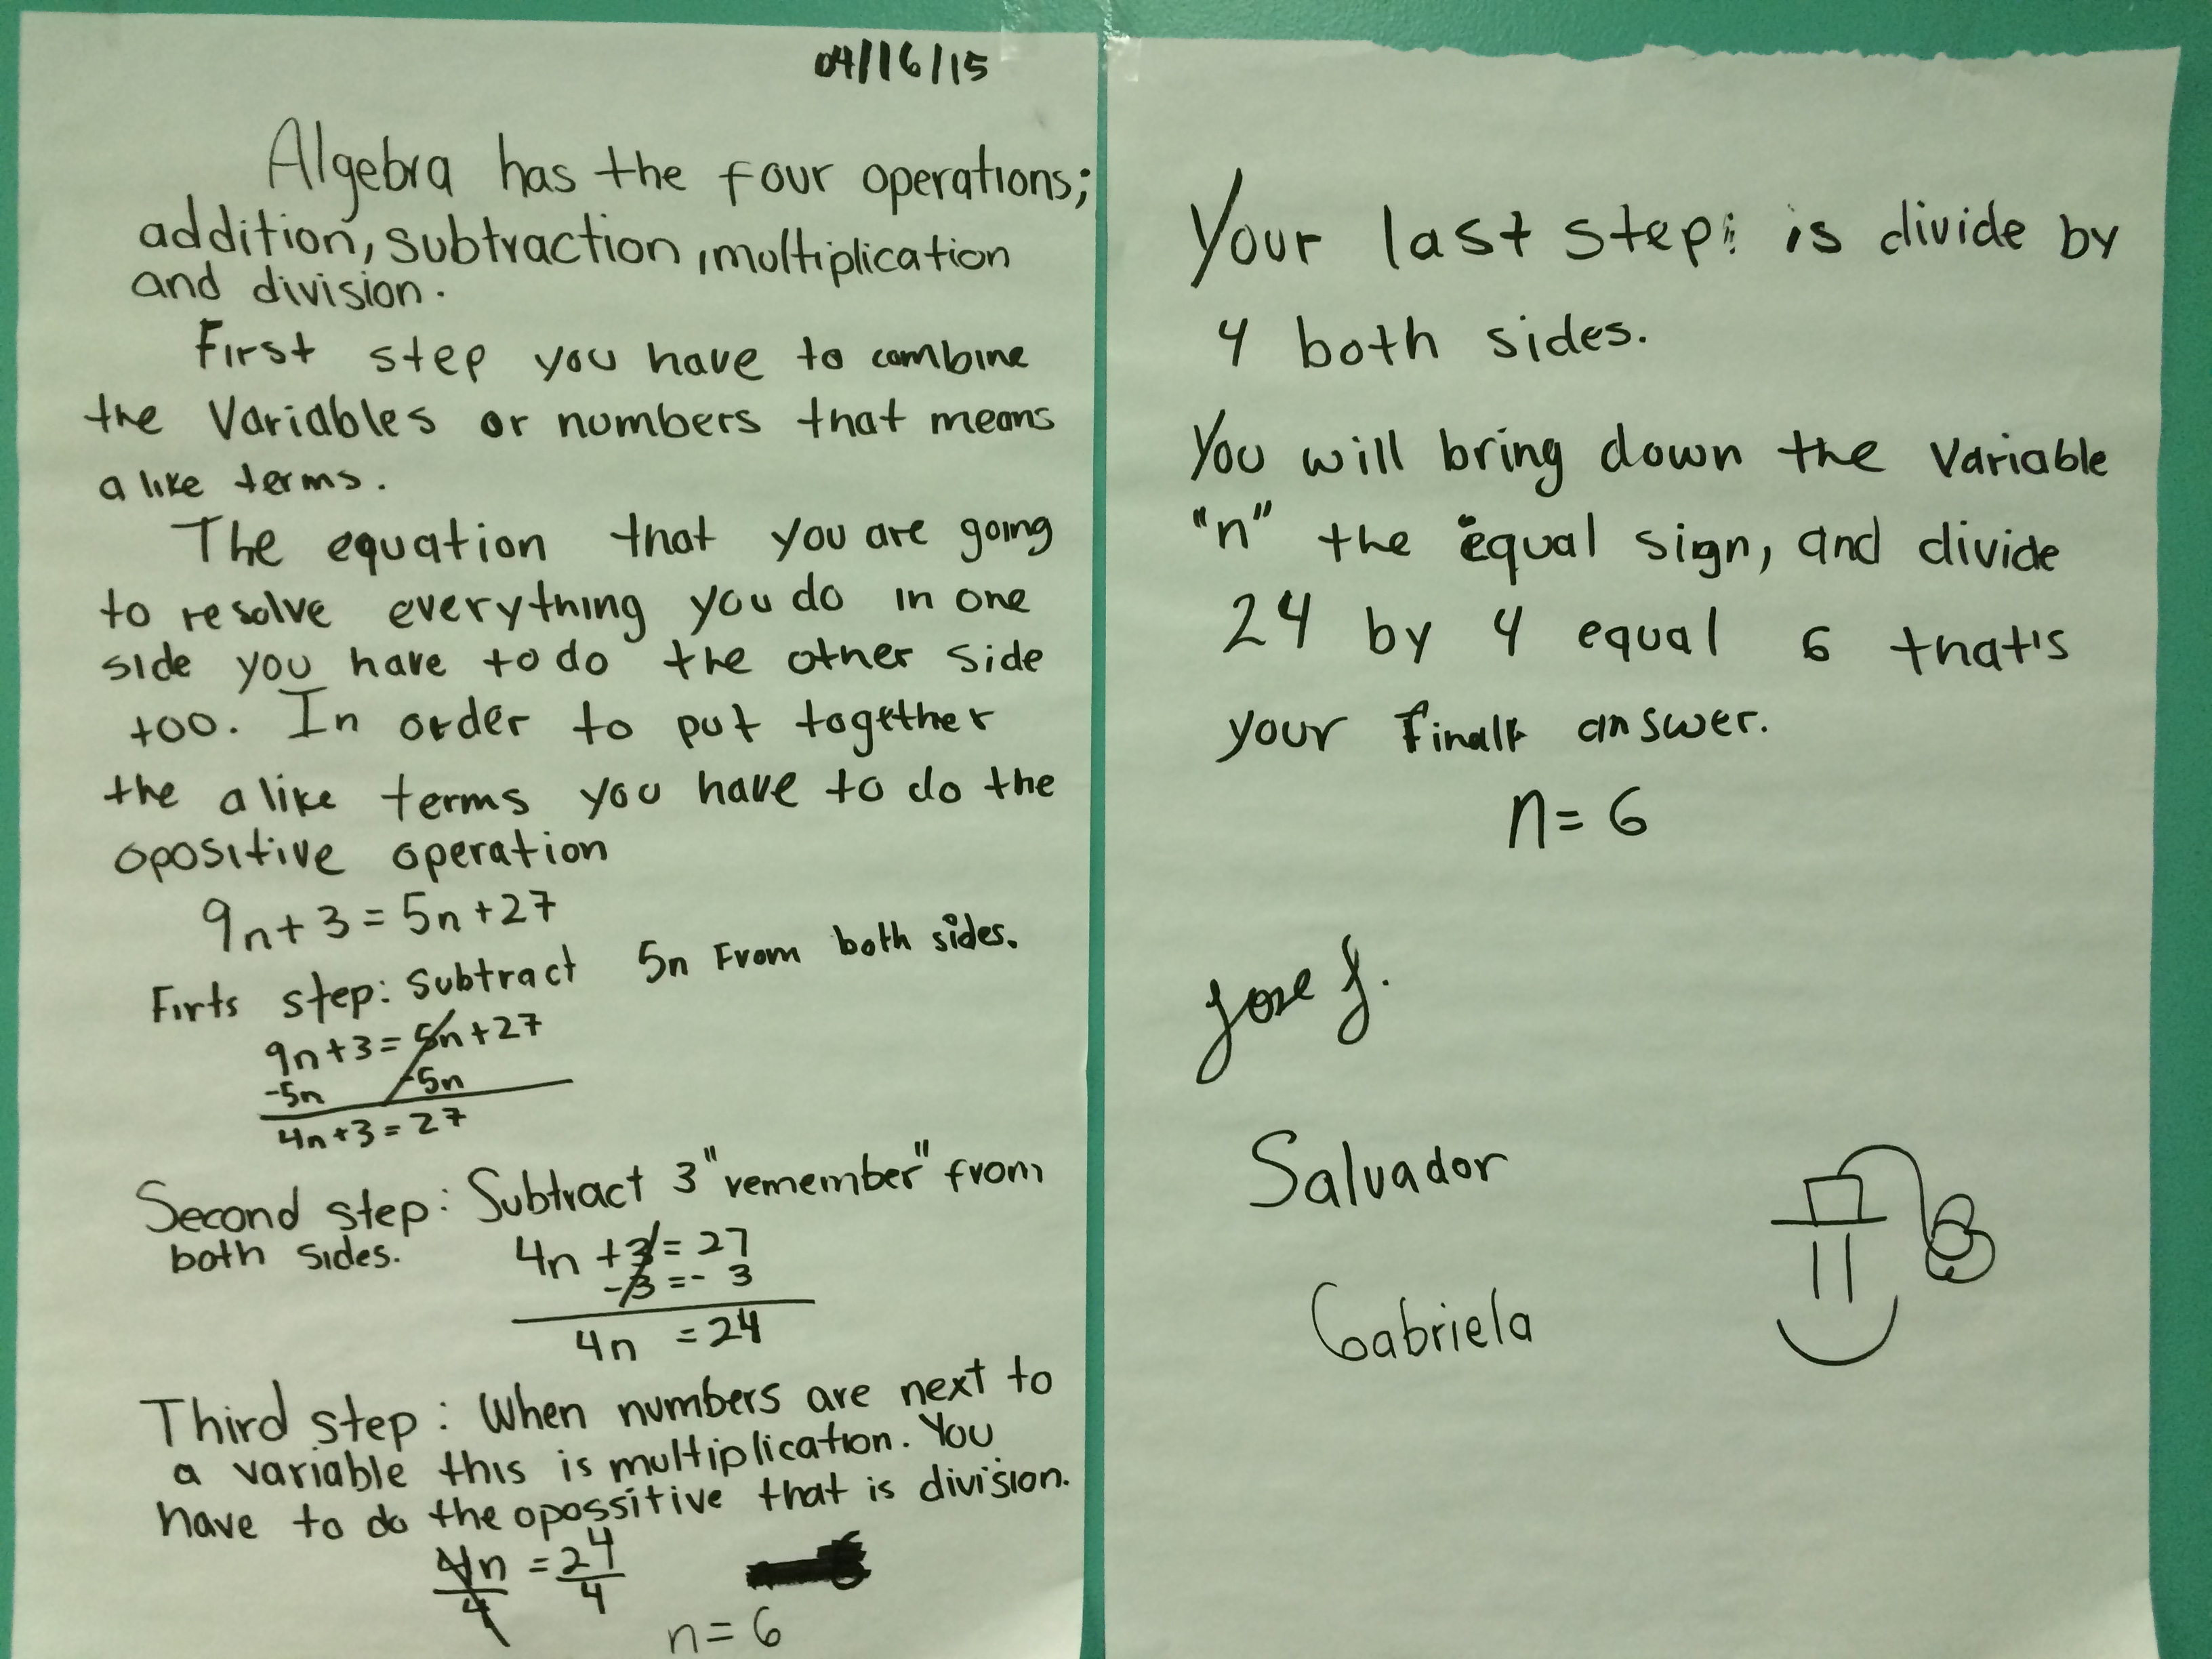 04/16/15
Algebra has the four operations;
addition, subtraction, multiplication
and division.
First step you have to combine
the Variables or numbers that means
a like terms.
The equation that you are going
to resolve everything you do in one
side you have to do the other side
too. In order to put together
the a like terms you have to do the
opositive operation
9n+3=5n+27
Firts step: Subtract 5n From both sides.
9n+3=5n+27
-5n -5n
4n+3=27
Second step: Subtract 3 "remember" from
both sides.
4n +3=27
-3=- 3
4n =24
Third step: When numbers are next to
a variable this is multiplication. You
have to do the opossitive that is division.
4n = 24
4 4
n=6
Your last step: is divide by
4 both sides.
You will bring down the Variable
"n" the equal sign, and divide
24 by 4 equal 6 that's
your Final answer.
n=6
Jose J.
Salvador
Gabriela